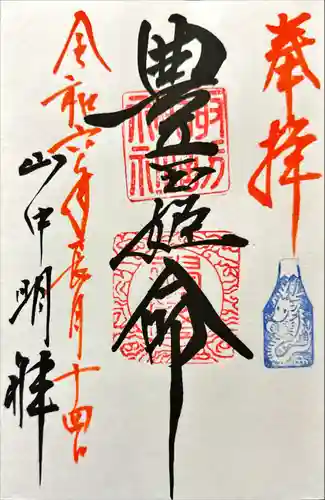 奉拝
豊玉姫命
令和六年長月十四日
山中明拝